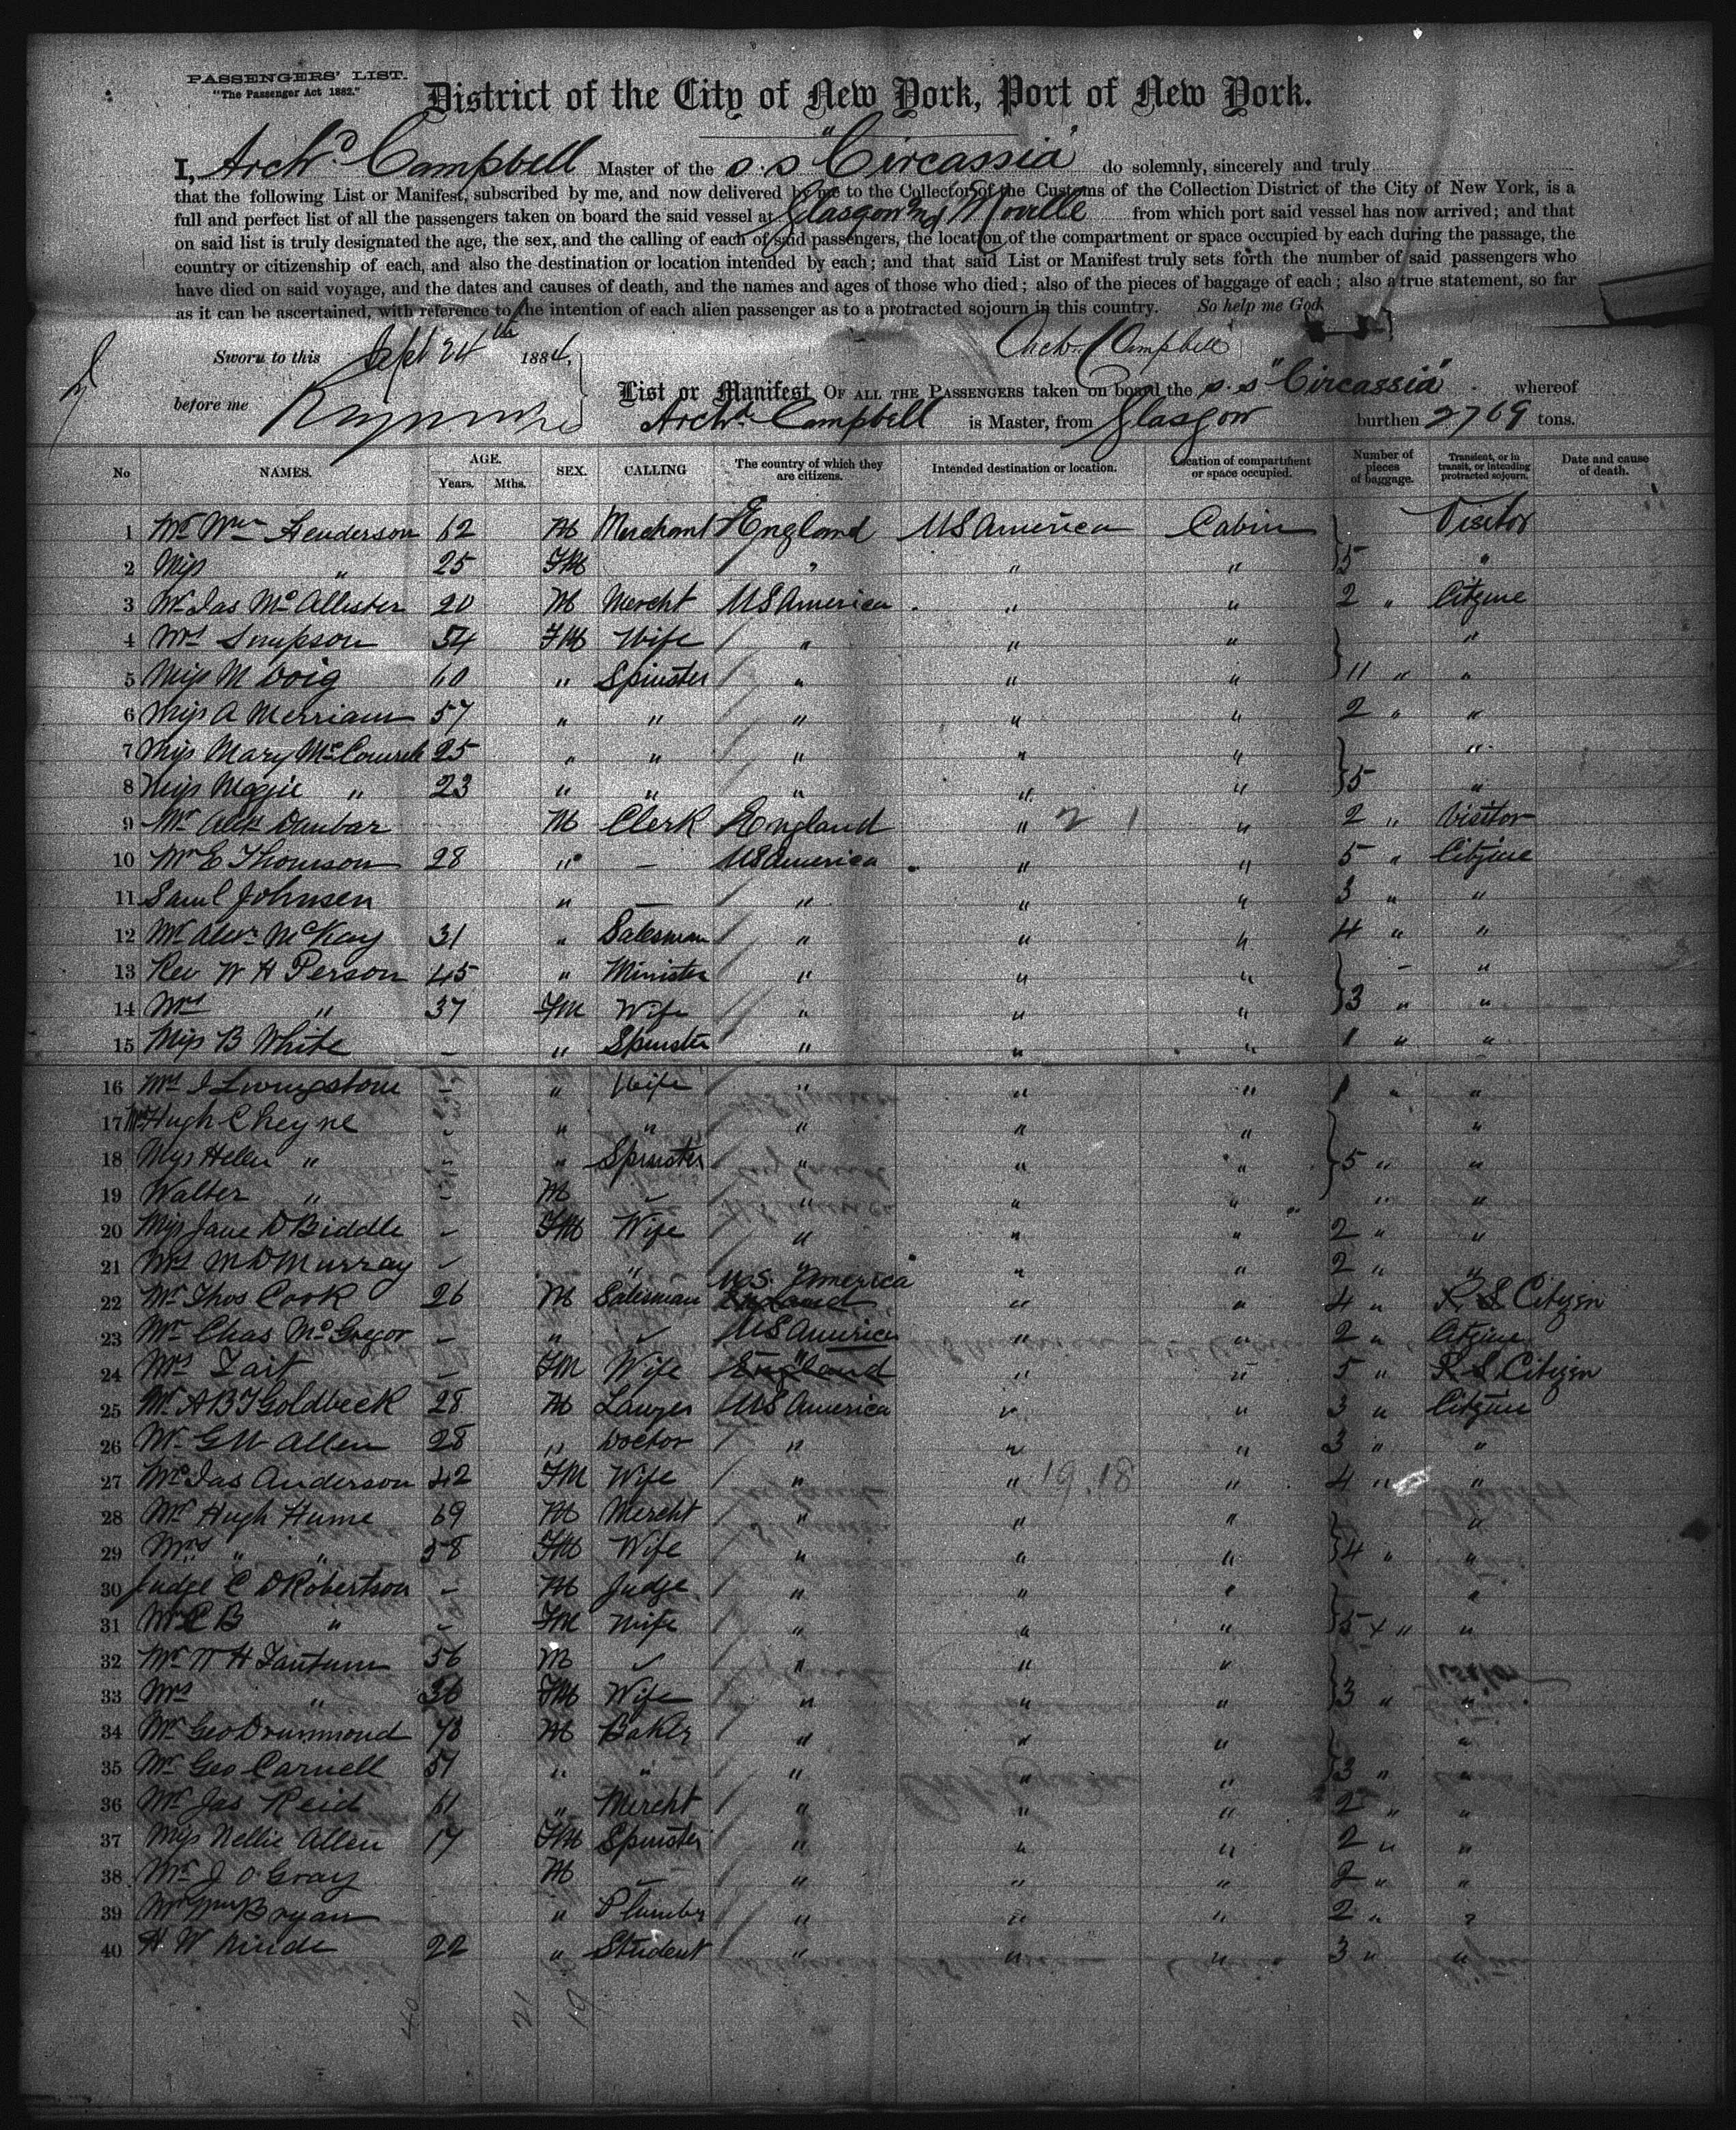 PASSENGERS' LIST.
"The Passenger Act 1882."
District of the City of New York, Port of New York.
I, Archd. Campbell Master of the s.s "Circassia" do solemnly, sincerely and truly
that the following List or Manifest, subscribed by me, and now delivered by me to the Collector of the Customs of the Collection District of the City of New York, is a
full and perfect list of all the passengers taken on board the said vessel at Glasgow and Moville from which port said vessel has now arrived; and that
on said list is truly designated the age, the sex, and the calling of each of said passengers, the location of the compartment or space occupied by each during the passage, the
country or citizenship of each, and also the destination or location intended by each; and that said List or Manifest truly sets forth the number of said passengers who
have died on said voyage, and the dates and causes of death, and the names and ages of those who died; also of the pieces of baggage of each; also a true statement, so far
as it can be ascertained, with reference to the intention of each alien passenger as to a protracted sojourn in this country. So help me God.
Sworn to this Sept 24th 1884. Archd. Campbell
before me
List or Manifest OF ALL THE PASSENGERS taken on board the s.s "Circassia" whereof
Archd. Campbell is Master, from Glasgow burthen 2769 tons.
No NAMES. AGE. Years. Mths. SEX. CALLING The country of which they are citizens. Intended destination or location. Location of compartment or space occupied. Number of pieces of baggage. Transient, or in transit, or intending protracted sojourn. Date and cause of death.
1 Mr Wm Henderson 62 M Merchant England US America Cabin Visitor
2 Miss " 25 FM " " " 5 "
3 Mr Jas McAllister 20 M Mercht US America " " 2 " Citzine
4 Mrs Simpson 54 FM Wife " " " "
5 Miss M Doig 60 " Spinster " " " 11 " "
6 Miss A Merriam 57 " " " " " 2 " "
7 Miss Mary 25 " " " " " "
8 Miss Megie " 23 " " " " " 5 "
9 Mr Alex Dunbar M Clerk England " 2 1 " 2 " Visitor
10 Mr E Thomson 28 " — US America " " 5 " Citzine
11 Saml Johnsen " — " " " 3 " "
12 Mr Alexr McKay 31 " Salesman " " " 4 " "
13 Rev W H Person 45 " Minister " " " - "
14 Mrs " 37 FM Wife " " " 3 " "
15 Miss B White – " Spinster " " " 1 " "
16 Mrs J Livingstone – " Wife " " " 1 " "
17 Mrs Hugh Cheyne – " " " " " "
18 Miss Helen " – " Spinster " " " 5 " "
19 Walter " – M – " " " " "
20 Miss Jane D Biddle – FM Wife " " " 2 " "
21 Mrs M D Murray – " " " " 2 " "
22 Mr Thos Cook 26 M Salesman U.S. America England " " 4 " Citizen
23 Mr Chas McGregor – " – US America " " 2 " Citzine
24 Mrs Tait – FM Wife England " " " 5 " Citizen
25 Mr A B T Goldbeck 28 M Lawyer US America " " 3 " Citzine
26 Mr G W Allen 28 " Doctor " " " 3 " "
27 Mrs Jas Anderson 42 FM Wife " " 19.18 " 4 " "
28 Mr Hugh Hume 69 M Mercht " " " "
29 Mrs " " 38 FM Wife " " " 4 " "
30 Judge C D Robertson – M Judge " " " "
31 Mrs C B " – FM Wife " " " 5 + " "
32 Mr W H Tantum 56 M – " " "
33 Mrs " 36 FM Wife " " " 3 " "
34 Mr Geo Drummond 73 M Baker " " " "
35 Mr Geo Carnell 51 " " " " " 3 " "
36 Mr Jas Reid 61 " Mercht " " " 2 " "
37 Miss Nellie Allen 17 FM Spinster " " " 2 " "
38 Mr J O Gray M – " " " 2 " "
39 Mr Wm Bryan " Plumber " " " 2 " "
40 H W 22 " Student " " " 3 " "
40 21 19